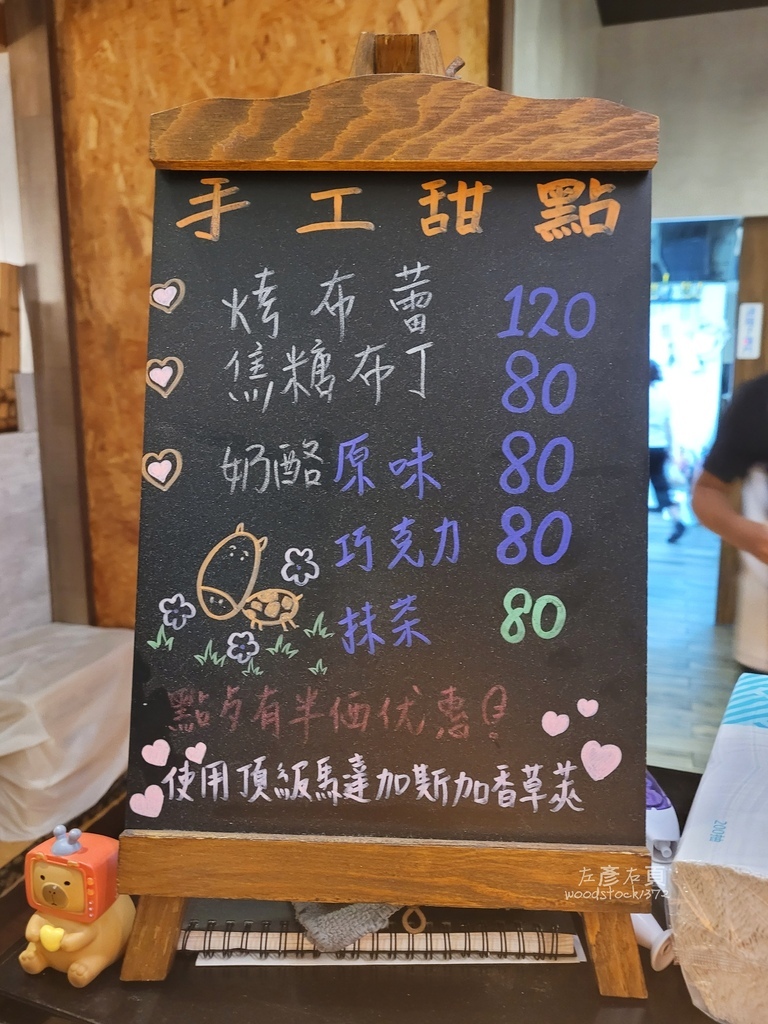 手工甜點
烤布蕾 120
焦糖布丁 80
奶酪原味 80
巧克力 80
抹茶 80
點歺有半価优惠!
使用頂級馬達加斯加香草莢
左彥右頁
woodstock1372
200抽